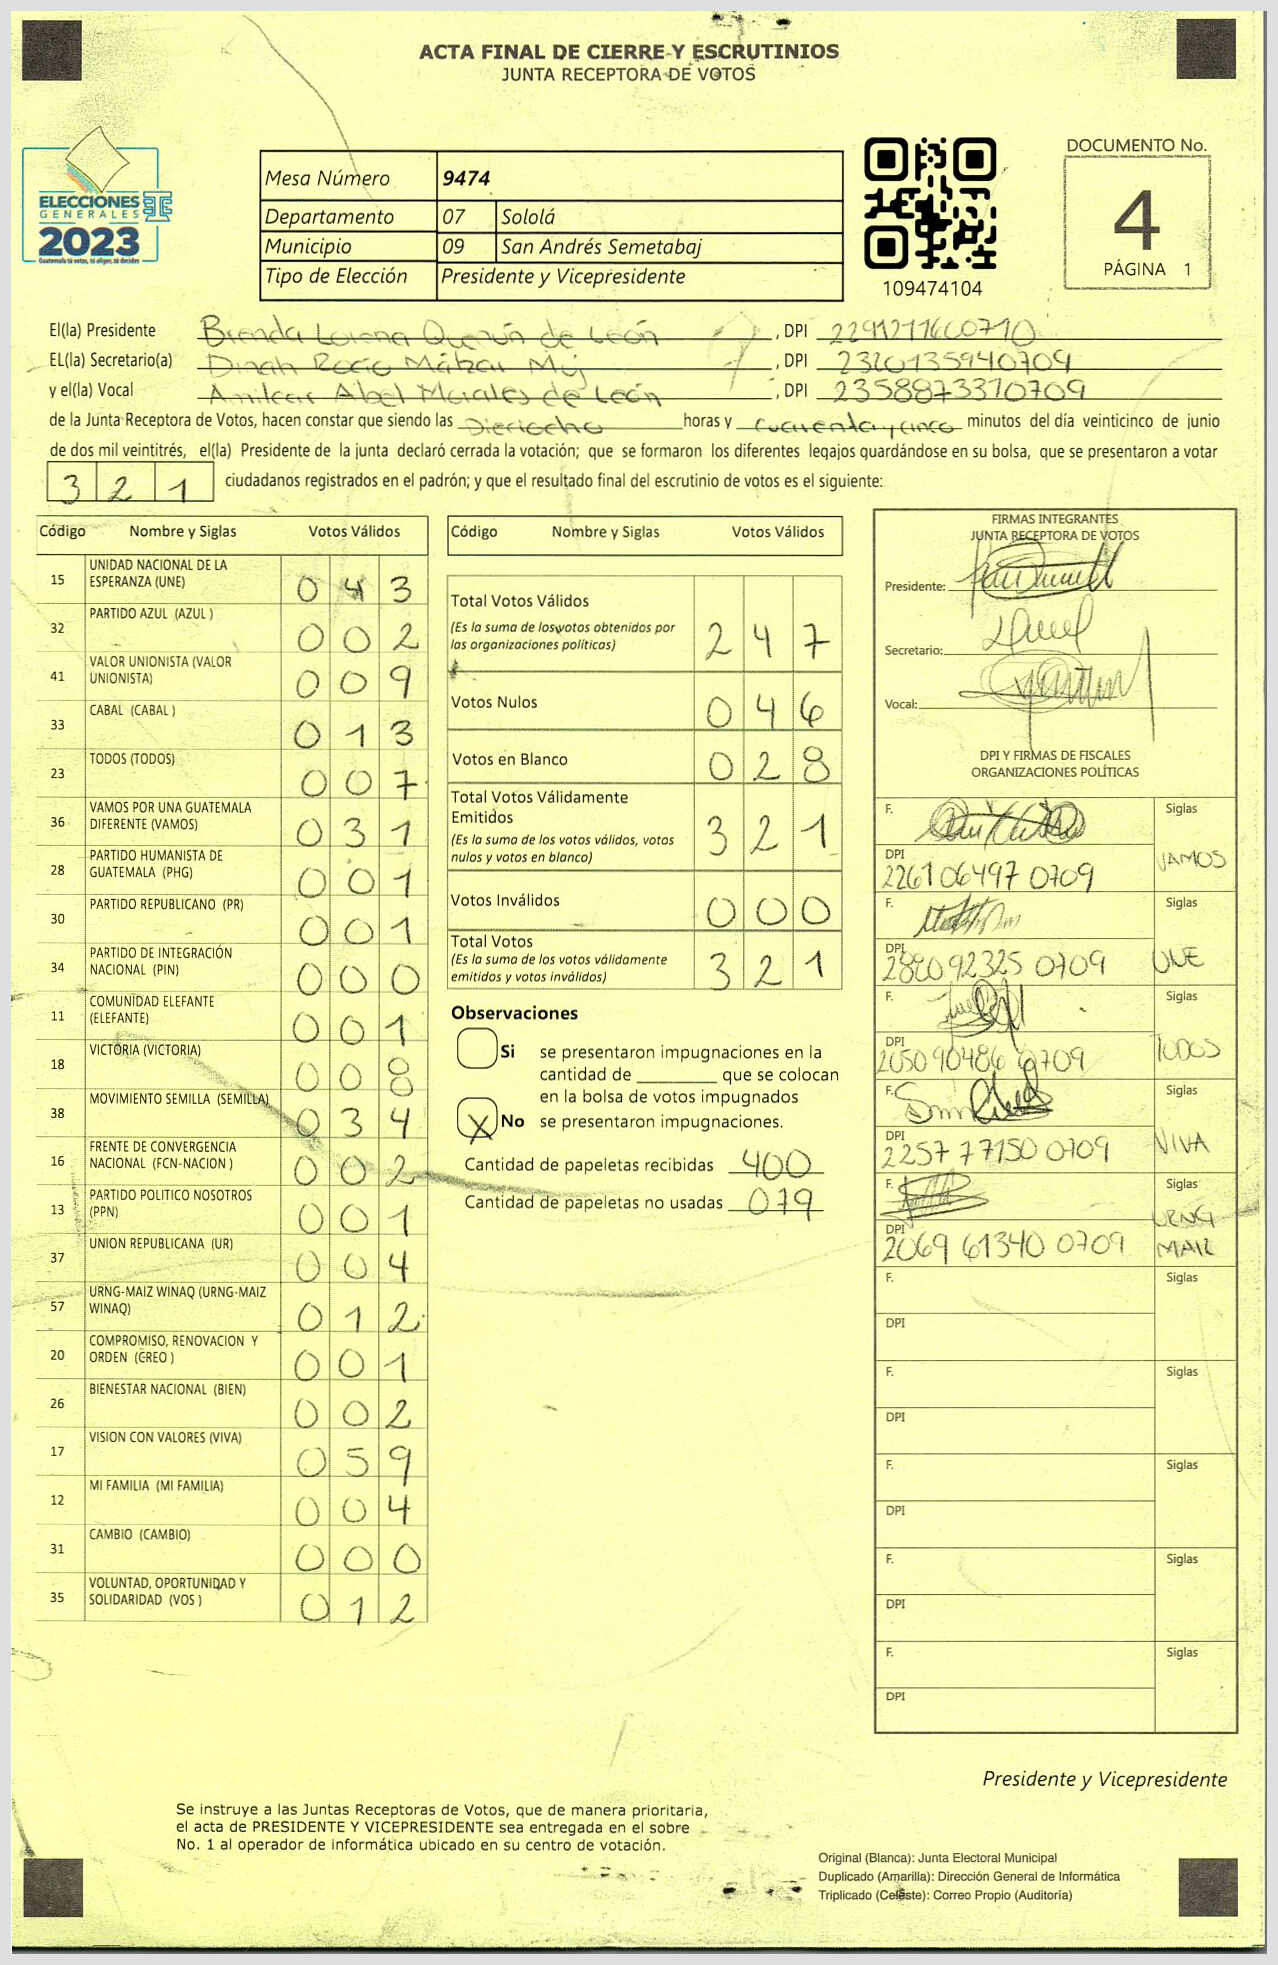 ACTA FINAL DE CIERRE Y ESCRUTINIOS
JUNTA RECEPTORA DE VOTOS
ELECCIONES
GENERALES
2023
Guatemala tú votas, tú eliges, tú decides
Mesa Número 9474
Departamento 07 Sololá
Municipio 09 San Andrés Semetabaj
Tipo de Elección Presidente y Vicepresidente
109474104
DOCUMENTO No.
4
PÁGINA 1
El(la) Presidente Brenda Lorena de León , DPI
EL(la) Secretario(a) Dinah Rocío Múj , DPI 2320135940709
y el(la) Vocal Amilcar Abel Morales de León , DPI 2358873370709
de la Junta Receptora de Votos, hacen constar que siendo las Dieciocho horas y cuarenta y cinco minutos del día veinticinco de junio
de dos mil veintitrés, el(la) Presidente de la junta declaró cerrada la votación; que se formaron los diferentes legajos guardándose en su bolsa, que se presentaron a votar
3 2 1 ciudadanos registrados en el padrón; y que el resultado final del escrutinio de votos es el siguiente:
Código Nombre y Siglas Votos Válidos
15 UNIDAD NACIONAL DE LA ESPERANZA (UNE) 0 4 3
32 PARTIDO AZUL (AZUL ) 0 0 2
41 VALOR UNIONISTA (VALOR UNIONISTA) 0 0 9
33 CABAL (CABAL ) 0 1 3
23 TODOS (TODOS) 0 0 7
36 VAMOS POR UNA GUATEMALA DIFERENTE (VAMOS) 0 3 1
28 PARTIDO HUMANISTA DE GUATEMALA (PHG) 0 0 1
30 PARTIDO REPUBLICANO (PR) 0 0 1
34 PARTIDO DE INTEGRACIÓN NACIONAL (PIN) 0 0 0
11 COMUNIDAD ELEFANTE (ELEFANTE) 0 0 1
18 VICTORIA (VICTORIA) 0 0 8
38 MOVIMIENTO SEMILLA (SEMILLA) 0 3 4
16 FRENTE DE CONVERGENCIA NACIONAL (FCN-NACION ) 0 0 2
13 PARTIDO POLITICO NOSOTROS (PPN) 0 0 1
37 UNION REPUBLICANA (UR) 0 0 4
57 URNG-MAIZ WINAQ (URNG-MAIZ WINAQ) 0 1 2
20 COMPROMISO, RENOVACION Y ORDEN (CREO ) 0 0 1
26 BIENESTAR NACIONAL (BIEN) 0 0 2
17 VISION CON VALORES (VIVA) 0 5 9
12 MI FAMILIA (MI FAMILIA) 0 0 4
31 CAMBIO (CAMBIO) 0 0 0
35 VOLUNTAD, OPORTUNIDAD Y SOLIDARIDAD (VOS ) 0 1 2
Código Nombre y Siglas Votos Válidos
Total Votos Válidos 2 4 7
(Es la suma de los votos obtenidos por
las organizaciones políticas)
Votos Nulos 0 4 6
Votos en Blanco 0 2 8
Total Votos Válidamente
Emitidos 3 2 1
(Es la suma de los votos válidos, votos
nulos y votos en blanco)
Votos Inválidos 0 0 0
Total Votos 3 2 1
(Es la suma de los votos válidamente
emitidos y votos inválidos)
Observaciones
Si se presentaron impugnaciones en la
cantidad de ________ que se colocan
en la bolsa de votos impugnados
X No se presentaron impugnaciones.
Cantidad de papeletas recibidas 400
Cantidad de papeletas no usadas 079
FIRMAS INTEGRANTES
JUNTA RECEPTORA DE VOTOS
Presidente:
Secretario:
Vocal:
DPI Y FIRMAS DE FISCALES
ORGANIZACIONES POLÍTICAS
F. Siglas
DPI 2261 06497 0709 VAMOS
F. Siglas
DPI 2880 92325 0709 UNE
F. Siglas
DPI 2050 90486 0709 TODOS
F. Siglas
DPI 2257 77150 0709 VIVA
F. Siglas
DPI 2069 61340 0709 URNG MAIZ
F. Siglas
DPI
F. Siglas
DPI
F. Siglas
DPI
F. Siglas
DPI
F. Siglas
DPI
Presidente y Vicepresidente
Se instruye a las Juntas Receptoras de Votos, que de manera prioritaria,
el acta de PRESIDENTE Y VICEPRESIDENTE sea entregada en el sobre
No. 1 al operador de informática ubicado en su centro de votación.
Original (Blanca): Junta Electoral Municipal
Duplicado (Amarilla): Dirección General de Informática
Triplicado (Celeste): Correo Propio (Auditoría)